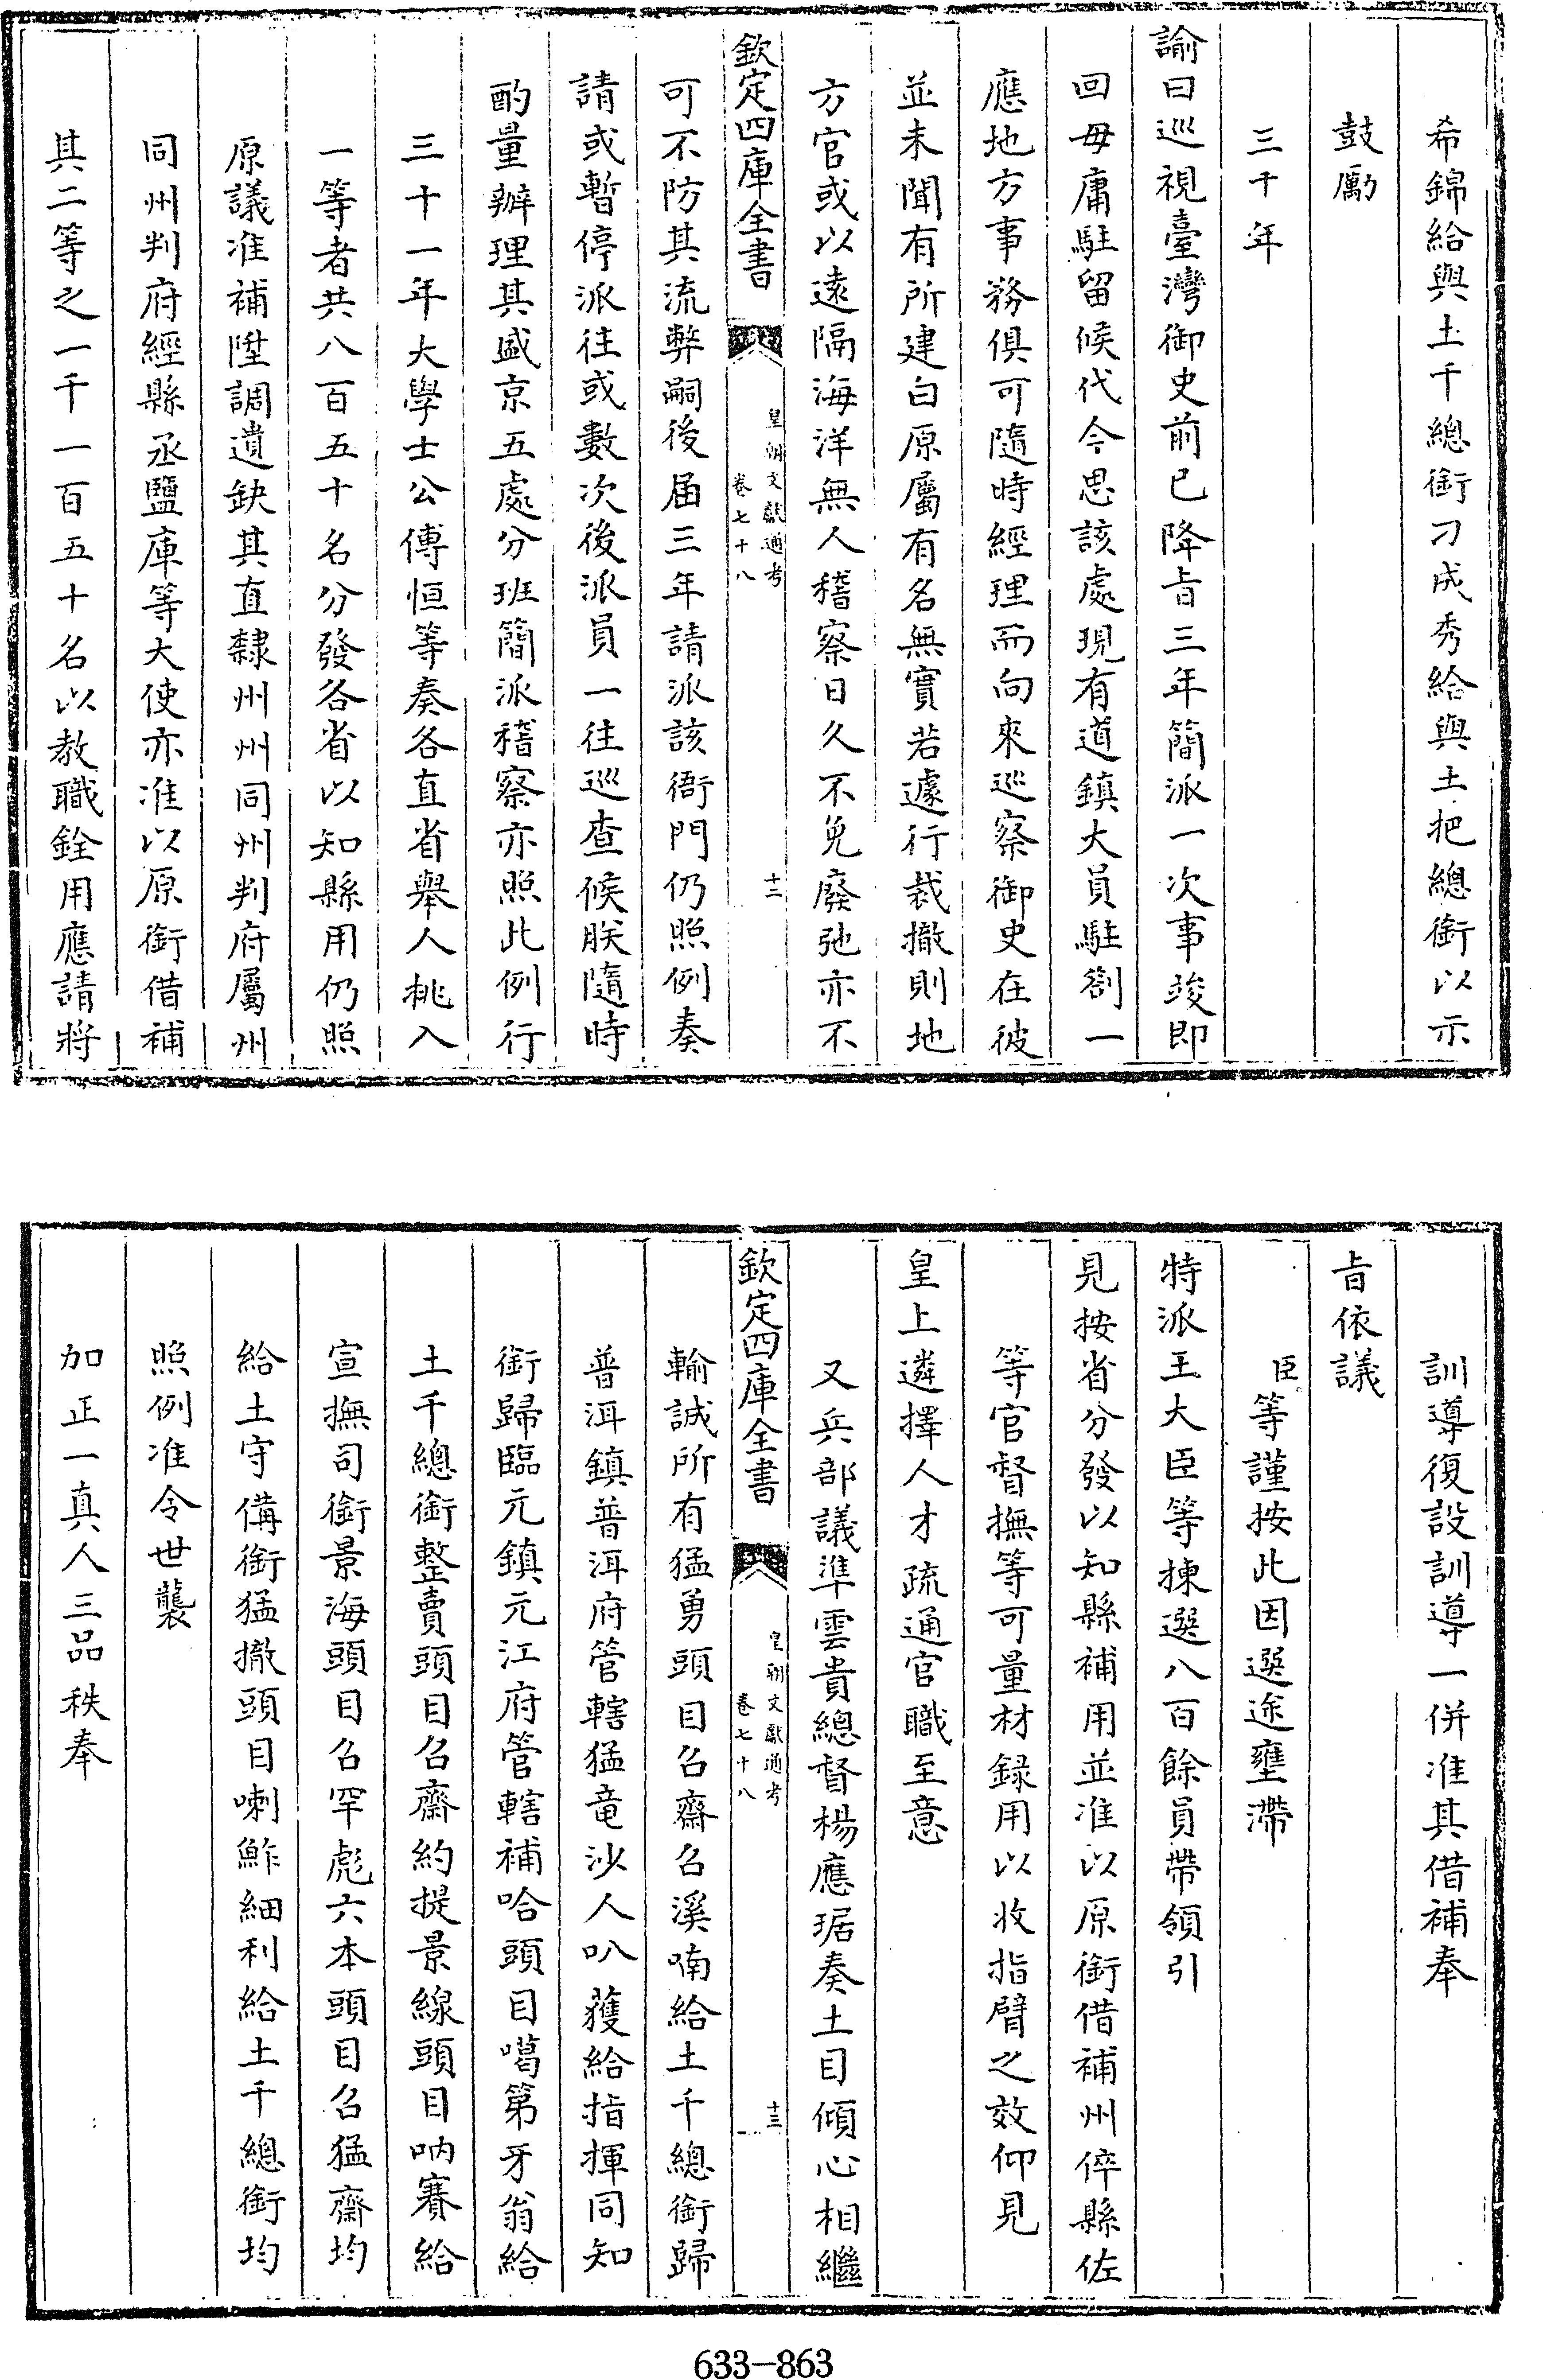 希錦給與土千總銜刁成秀給與土把總銜以示
鼓勵
三十年
諭曰巡視臺灣御史前已降旨三年簡派一次事竣即
回毋庸駐留候代今思該處現有道鎮大員駐劄一
應地方事務俱可隨時經理而向來巡察御史在彼
並未聞有所建白原屬有名無實若遽行裁撤則地
方官或以遠隔海洋無人稽察日久不免廢弛亦不
欽定四庫全書
皇朝文獻通考
卷七十八
十二
可不防其流弊嗣後届三年請派該衙門仍照例奏
請或暫停派往或數次後派員一往巡查候朕隨時
酌量辦理其盛京五處分班簡派稽察亦照此例行
三十一年大學士公傅恒等奏各直省舉人挑入
一等者共八百五十名分發各省以知縣用仍照
原議准補陞調遺缺其直隸州州同州判府屬州
同州判府經縣丞鹽庫等大使亦准以原銜借補
其二等之一千一百五十名以教職銓用應請將
訓導復設訓導一併准其借補奉
旨依議
臣等謹按此因選途壅滯
特派王大臣等揀選八百餘員帶領引
見按省分發以知縣補用並准以原銜借補州倅縣佐
等官督撫等可量材録用以收指臂之效仰見
皇上遴擇人才疏通官職至意
又兵部議準雲貴總督楊應琚奏土目傾心相繼
欽定四庫全書
皇朝文獻通考
卷七十八
十三
輸誠所有猛勇頭目召齋召溪喃給土千總銜歸
普洱鎮普洱府管轄猛竜沙人叭護給指揮同知
銜歸臨元鎮元江府管轄補哈頭目噶第牙翁給
土千總銜整賣頭目召齋約提景線頭目呐賽給
宣撫司銜景海頭目召罕彪六本頭目召猛齋均
給土守備銜猛撒頭目喇鮓細利給土千總銜均
照例准令世襲
加正一真人三品秩奉
633-863